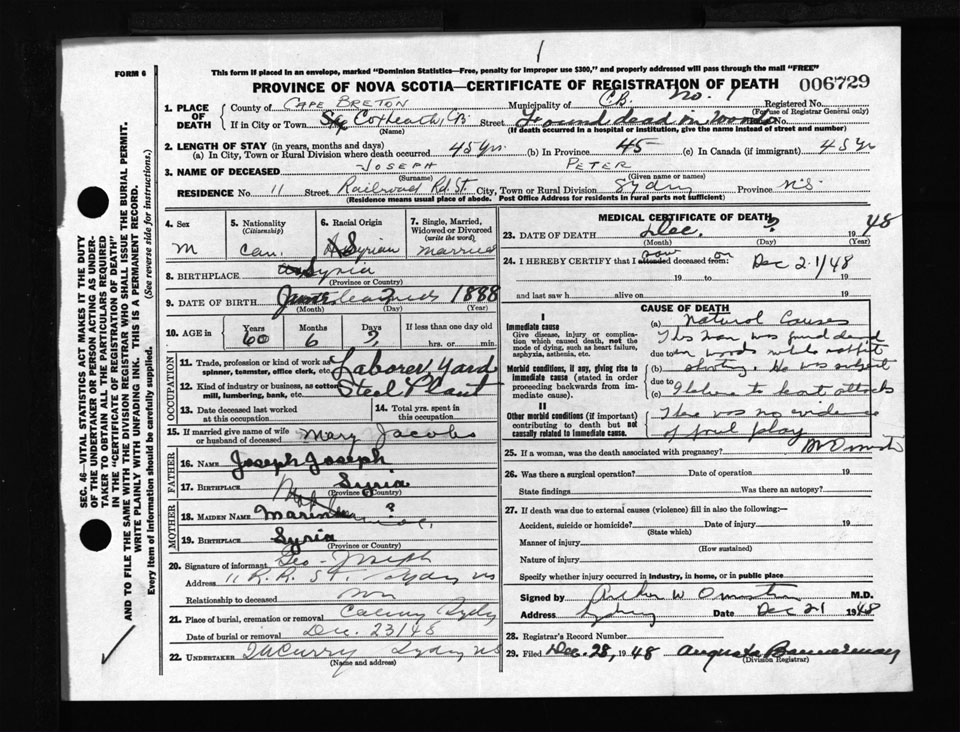 FORM 6
This form if placed in an envelope, marked "Dominion Statistics—Free, penalty for improper use $300," and properly addressed will pass through the mail "FREE"
PROVINCE OF NOVA SCOTIA—CERTIFICATE OF REGISTRATION OF DEATH
006729
1. PLACE OF DEATH
County of CAPE BRETON Municipality of C.B. No. 1 Registered No.
(For use of Registrar General only)
If in City or Town Coxheath, CB Street Found dead in woods No.
(Name) (If death occurred in a hospital or institution, give the name instead of street and number)
2. LENGTH OF STAY (in years, months and days)
(a) In City, Town or Rural Division where death occurred 45 yrs. (b) In Province 45 (c) In Canada (if immigrant) 45 yr
3. NAME OF DECEASED JOSEPH PETER
(Surname) (Given name or names)
RESIDENCE No. 11 Street Railroad Rd. St. City, Town or Rural Division Sydney Province N.S.
(Residence means usual place of abode. Post Office Address for residents in rural parts not sufficient)
4. Sex M
5. Nationality (Citizenship) Can.
6. Racial Origin Syrian
7. Single, Married, Widowed or Divorced (write the word) married
8. BIRTHPLACE Syria
(Province or Country)
9. DATE OF BIRTH 1888
(Month) (Day) (Year)
10. AGE in Years Months Days If less than one day old
60 6 ? hrs. or min.
OCCUPATION
11. Trade, profession or kind of work as spinner, teamster, office clerk, etc. Laborer Yard
12. Kind of industry or business, as cotton mill, lumbering, bank, etc. Steel Plant
13. Date deceased last worked at this occupation
14. Total yrs. spent in this occupation
15. If married give name of wife or husband of deceased Mary Jacobs
FATHER
16. NAME Joseph Joseph
17. BIRTHPLACE Syria
(Province or Country)
MOTHER
18. MAIDEN NAME ?
19. BIRTHPLACE Syria
(Province or Country)
20. Signature of informant Geo. Joseph
Address 11 R.R. St. Sydney NS
Relationship to deceased son
21. Place of burial, cremation or removal Sydney
Date of burial or removal Dec. 23/48
22. UNDERTAKER Sydney NS
(Name and address)
MEDICAL CERTIFICATE OF DEATH
23. DATE OF DEATH Dec. ? 1948
(Month) (Day) (Year)
24. I HEREBY CERTIFY that I attended deceased from: saw on Dec 21/48
19 to 19
and last saw h alive on 19
CAUSE OF DEATH
I
Immediate cause
Give disease, injury or complication which caused death, not the mode of dying, such as heart failure, asphyxia, asthenia, etc.
Morbid conditions, if any, giving rise to immediate cause (stated in order proceeding backwards from immediate cause).
II
Other morbid conditions (if important) contributing to death but not causally related to immediate cause.
(a) Natural Causes
This man was found dead
due to in woods while rabbit
(b) shooting. He was subject
due to
(c) I believe to heart attacks
There was no evidence
of foul play
25. If a woman, was the death associated with pregnancy?
26. Was there a surgical operation? Date of operation 19
State findings Was there an autopsy?
27. If death was due to external causes (violence) fill in also the following:—
Accident, suicide or homicide? Date of injury 19
(State which)
Manner of injury
(How sustained)
Nature of injury
Specify whether injury occurred in industry, in home, or in public place
Signed by Arthur W Ormiston M.D.
Address Sydney Date Dec 21 1948
28. Registrar's Record Number
29. Filed Dec. 28, 1948 Augusta Bannerman
(Division Registrar)
SEC. 46—VITAL STATISTICS ACT MAKES IT THE DUTY OF THE UNDERTAKER OR PERSON ACTING AS UNDERTAKER TO OBTAIN ALL THE PARTICULARS REQUIRED IN THE "CERTIFICATE OF REGISTRATION OF DEATH"
AND TO FILE THE SAME WITH THE DIVISION REGISTRAR WHO SHALL ISSUE THE BURIAL PERMIT.
WRITE PLAINLY WITH UNFADING INK. THIS IS A PERMANENT RECORD.
Every item of information should be carefully supplied. (See reverse side for instructions.)